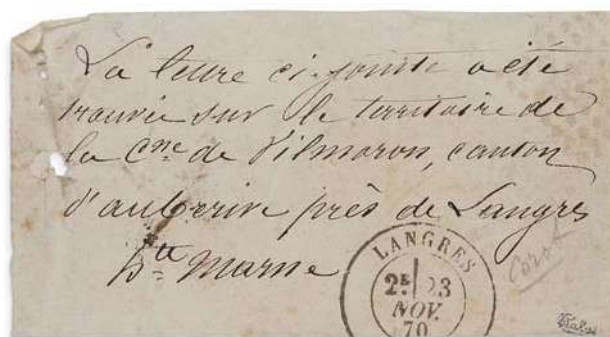 La lettre ci-jointe a été
trouvée sur le territoire de
la Cne de Vilmoron, canton
d'auberive près de Langres
hte Marne
LANGRES
2E 23
NOV.
70